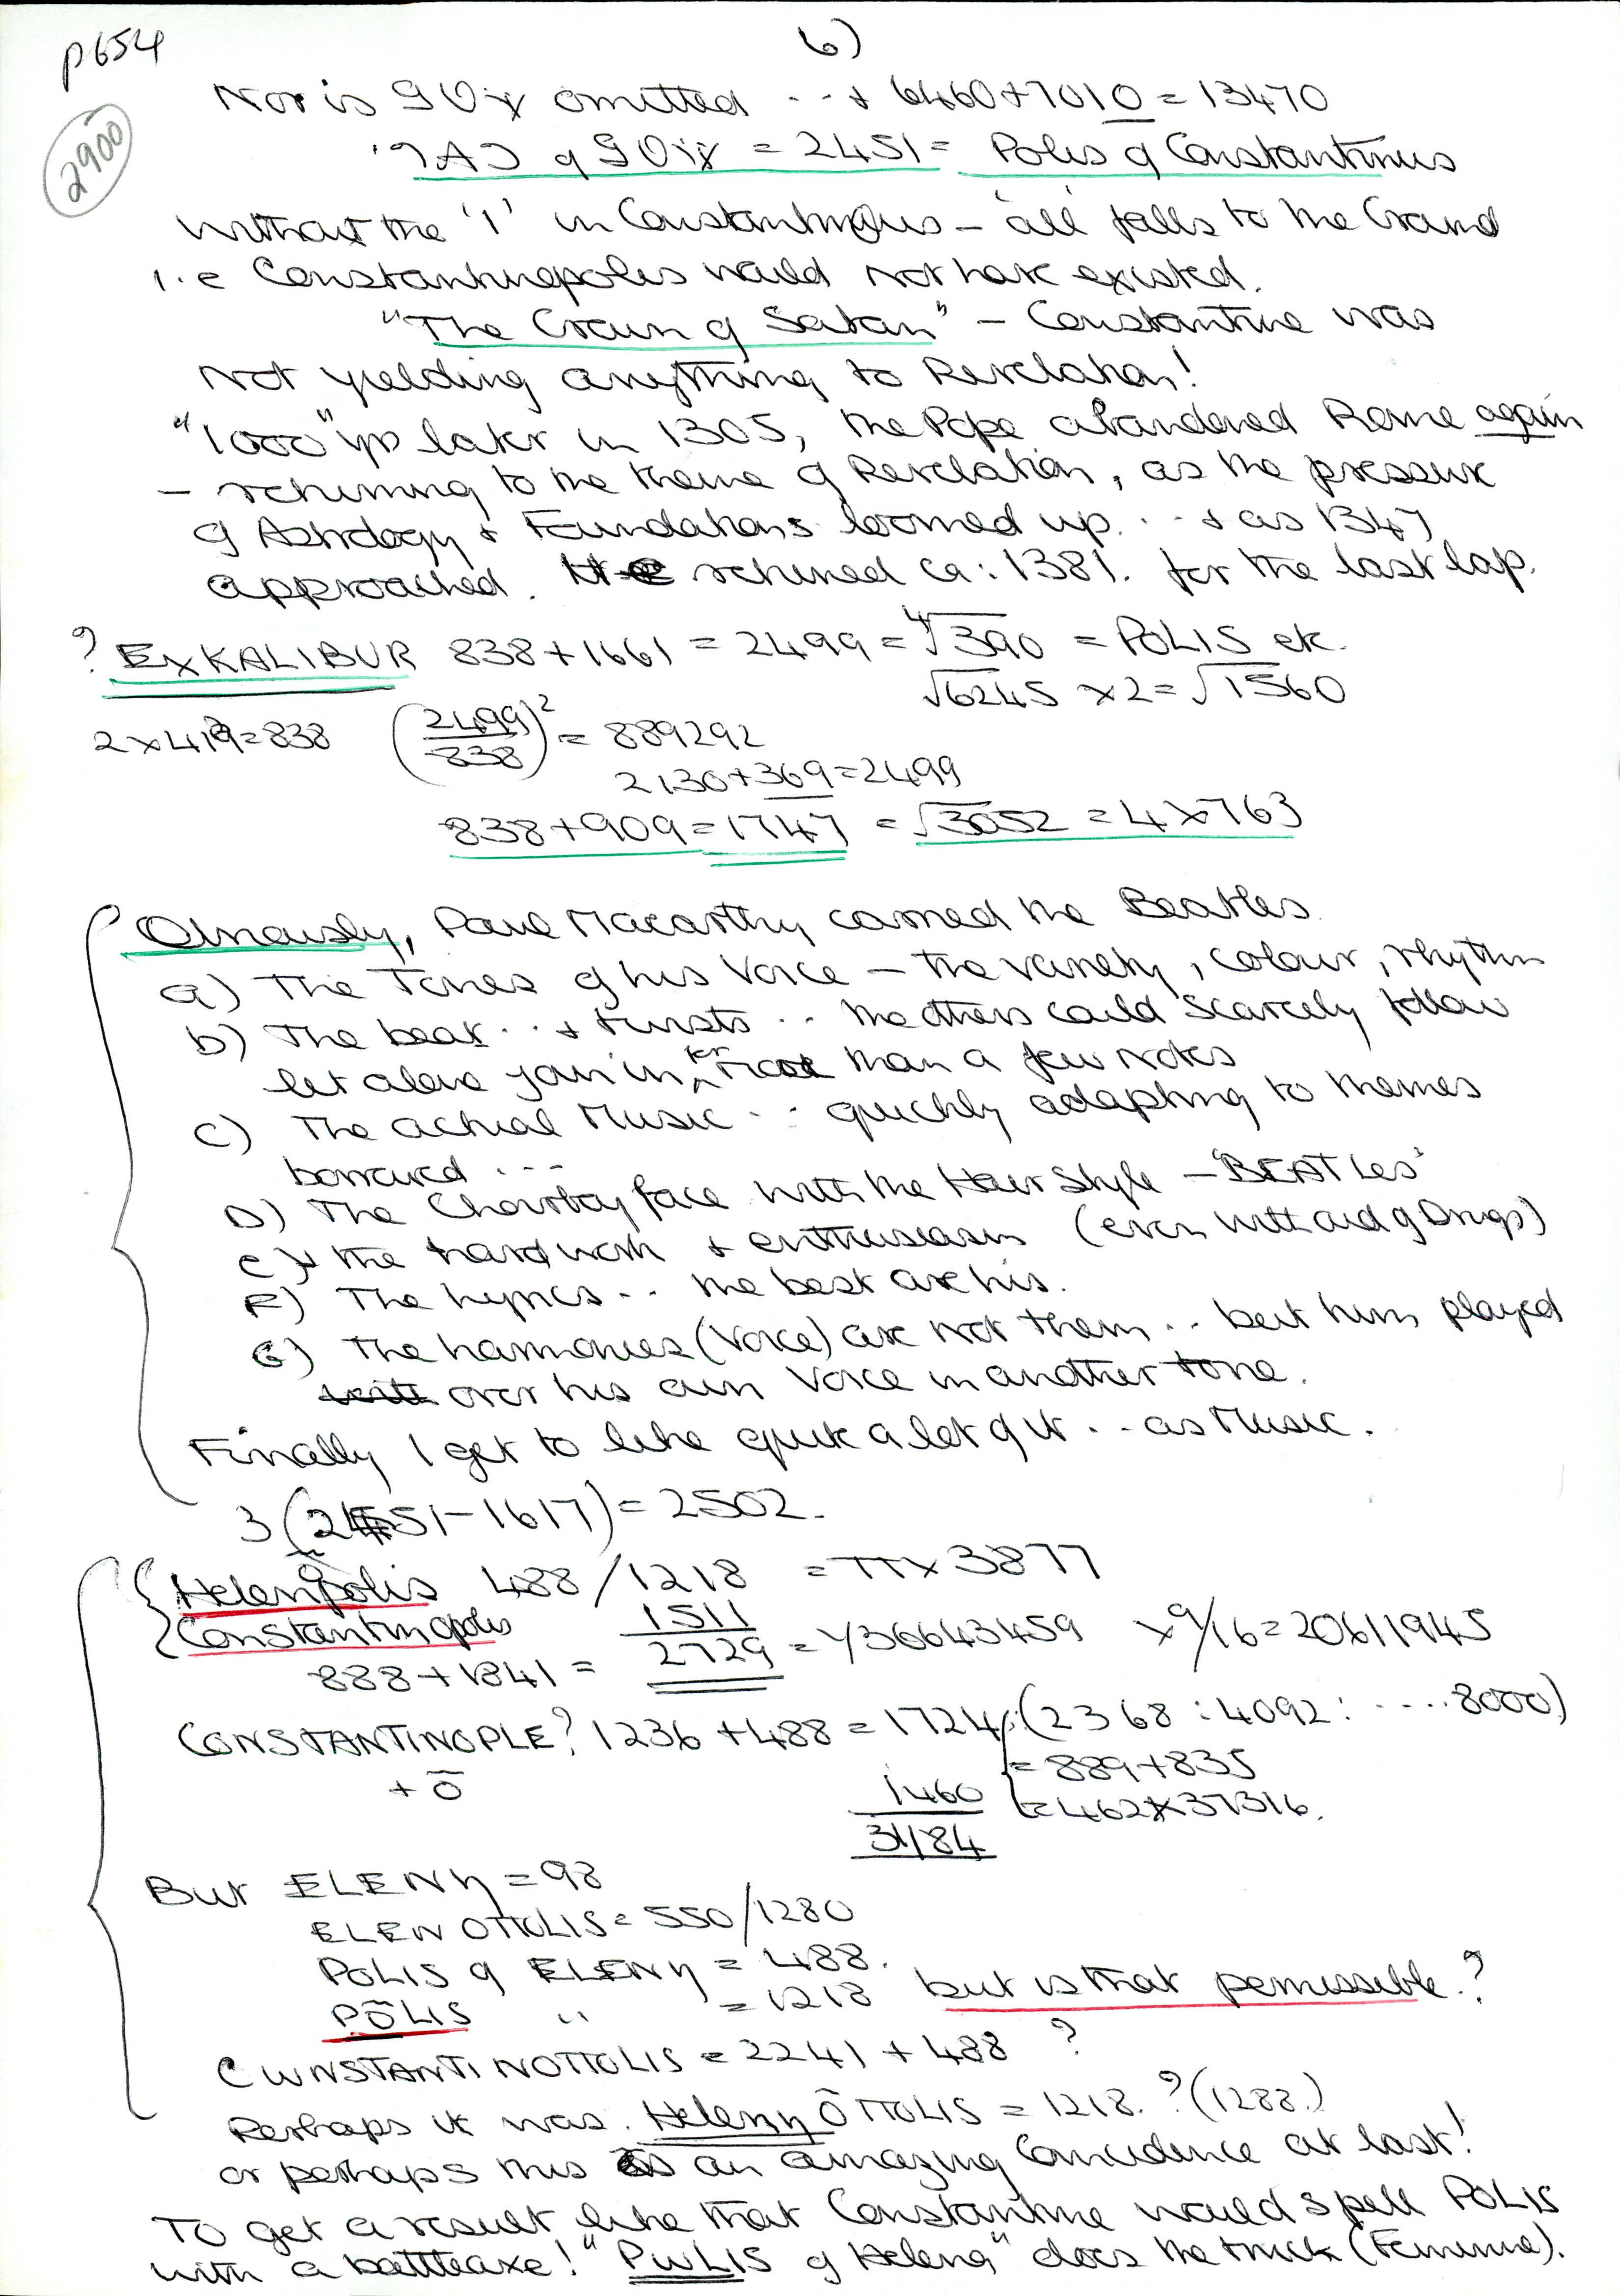 p654
6)
2900
Nor is omitted . . + 6460+7010 = 13470
= 2451 = Polis of Constantinus
Without the '1' in Constantinus – all falls to the Ground
i.e Constantinopolis would not have existed.
"The Crown of Satan" – Constantine was
not yielding anything to Revelation!
"1000" yrs later in 1305, the Pope abandoned Rome again
– returning to the theme of Revelation, as the pressure
of Astrology + Foundations loomed up. . . + as 1347
approached. returned ca: 1381. for the last lap.
? EXKALIBUR 838+1661 = 2499 = ∜390 = POLIS etc.
√6245 x2 = √1560
2x419=838 (2499/838)² = 889292
2130+369=2499
838+909=1747 = √3052 = 4x763
Obviously, Paul Macarthy carried the Beatles.
a) The Tones of his Voice – the variety, colour, rhythm
b) The beat . . + twists . . the others could scarcely follow
let alone join in for more than a few notes
c) The actual Music . . quickly adapting to themes
borrowed . . .
D) The Choirboy face with the Hair Style – 'BEATLes'
e) the hard work + enthusiasm (even with aid of Drugs)
F) The lyrics . . the best are his.
G) The harmonies (Voice) are not them . . but him played
over his own Voice in another tone.
Finally I get to like quite a lot of it . . as Music.
3(2451-1617) = 2502.
Helenopolis 488/1218 = π x 3877
Constantinopolis 1511
888+1841 = 2729 = √36643459 x 9/16 = 20611945
CONSTANTINOPLE? 1236 + 488 = 1724 (2368 : 4092 : .... 8000)
+ ō = 889+835
1460 = 462x37316.
3184
But ELENη = 98
ELENOΠOLIS = 550/1280
POLIS of ELENη = 488.
PŌLIS " = 1218 but is that permissible?
CWNSTANTINOΠOLIS = 2241 + 488 ?
Perhaps it was Helenη ŌΠOLIS = 1218. ? (1288.)
or perhaps this is an amazing Coincidence at last!
To get a result like that Constantine would spell POLIS
with a battleaxe! "PWLIS of Helena" does the trick (Feminine).